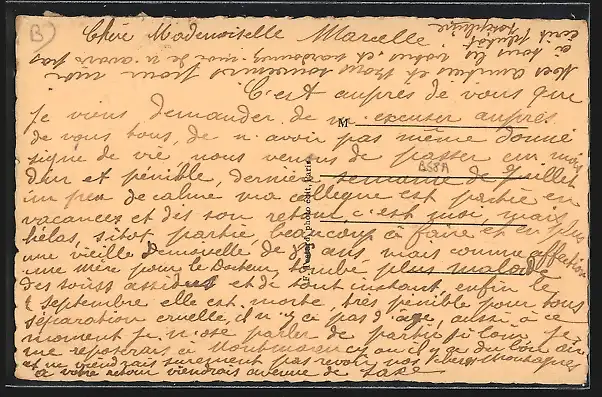 B
Chère Mademoiselle Marcelle
C'est auprès de vous que
je viens demander de m'excuser auprès
de vous tous, de n'avoir pas même donné
signe de vie, nous venons de passer un mois
dur et pénible, dernière semaine de Juillet
un peu de calme ma collègue est partie en
vacances et dès son retour, c'est moi, mais
hélas, sitôt partie beaucoup à faire et en plus
une vieille demoiselle de ans, mais comme affection
une mère pour le Docteur, tombé plus malade
des soins assidus et de tout instant, enfin le
septembre elle est morte très pénible pour tous
séparation cruelle, il n'y a pas d'age, aussi à ce
moment je n'ose parler de partir si loin je
me reposerais à Montmorency où il y a du bon air
et ne viendrais surement pas revoir nos montagnes
à votre retour viendrais avenue de Saxe
Nos amitiés et bons souvenirs pour
à tous les vôtres et pardonnez moi de n'avoir pas
écrit plutôt
M
B58A
photo édit. Paris